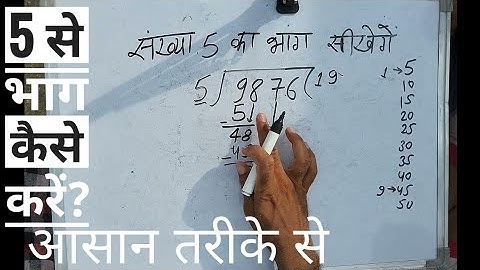 5 से
भाग
कैसे
करें?
आसान तरीके से
संख्या 5 का भाग सीखेगें
5) 9876 (19
- 5
48
- 4
1 → 5
10
15
20
25
30
35
40
9 → 45
50